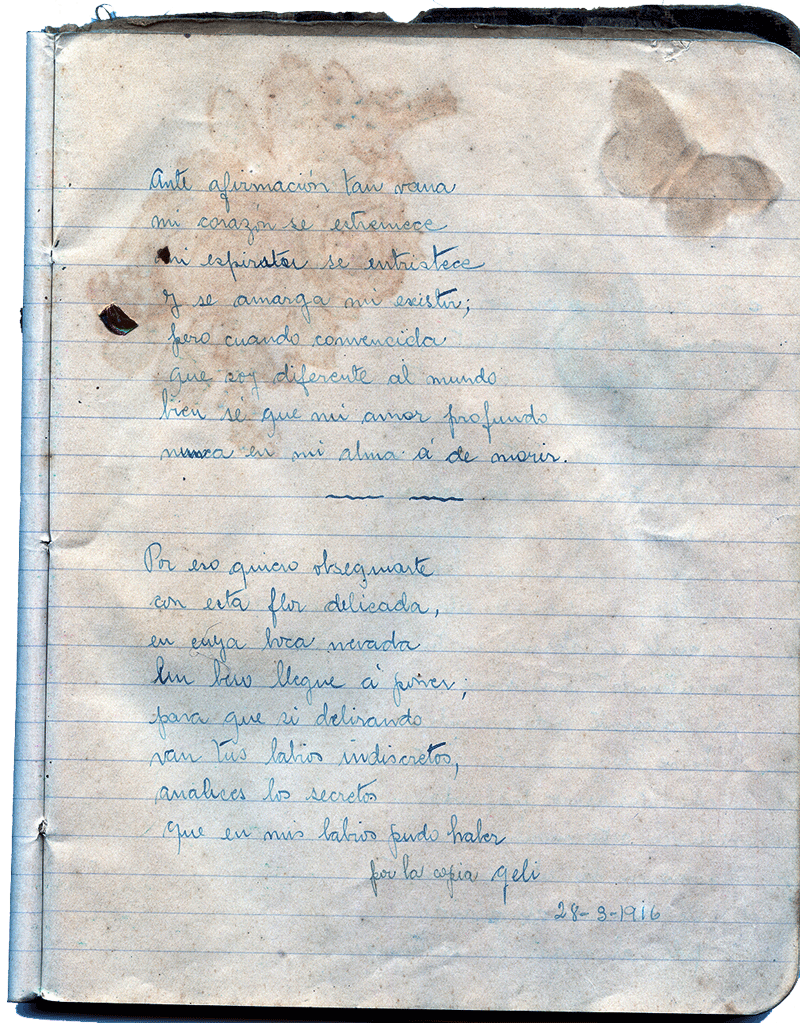 Ante afirmación tan vana
mi corazón se estremece
mi espiratu se entristece
y se amarga mi existir;
pero cuando convencida
que soy diferente al mundo
bien sé que mi amor profundo
nunca en mi alma á de morir.
Por eso quiero obsequiarte
con esta flor delicada,
en cuya boca nevada
un beso llegue á poner;
para que si delirando
van tus labios indiscretos,
analices los secretos
que en mis labios pudo haber
por la copia Geli
28-3-1916